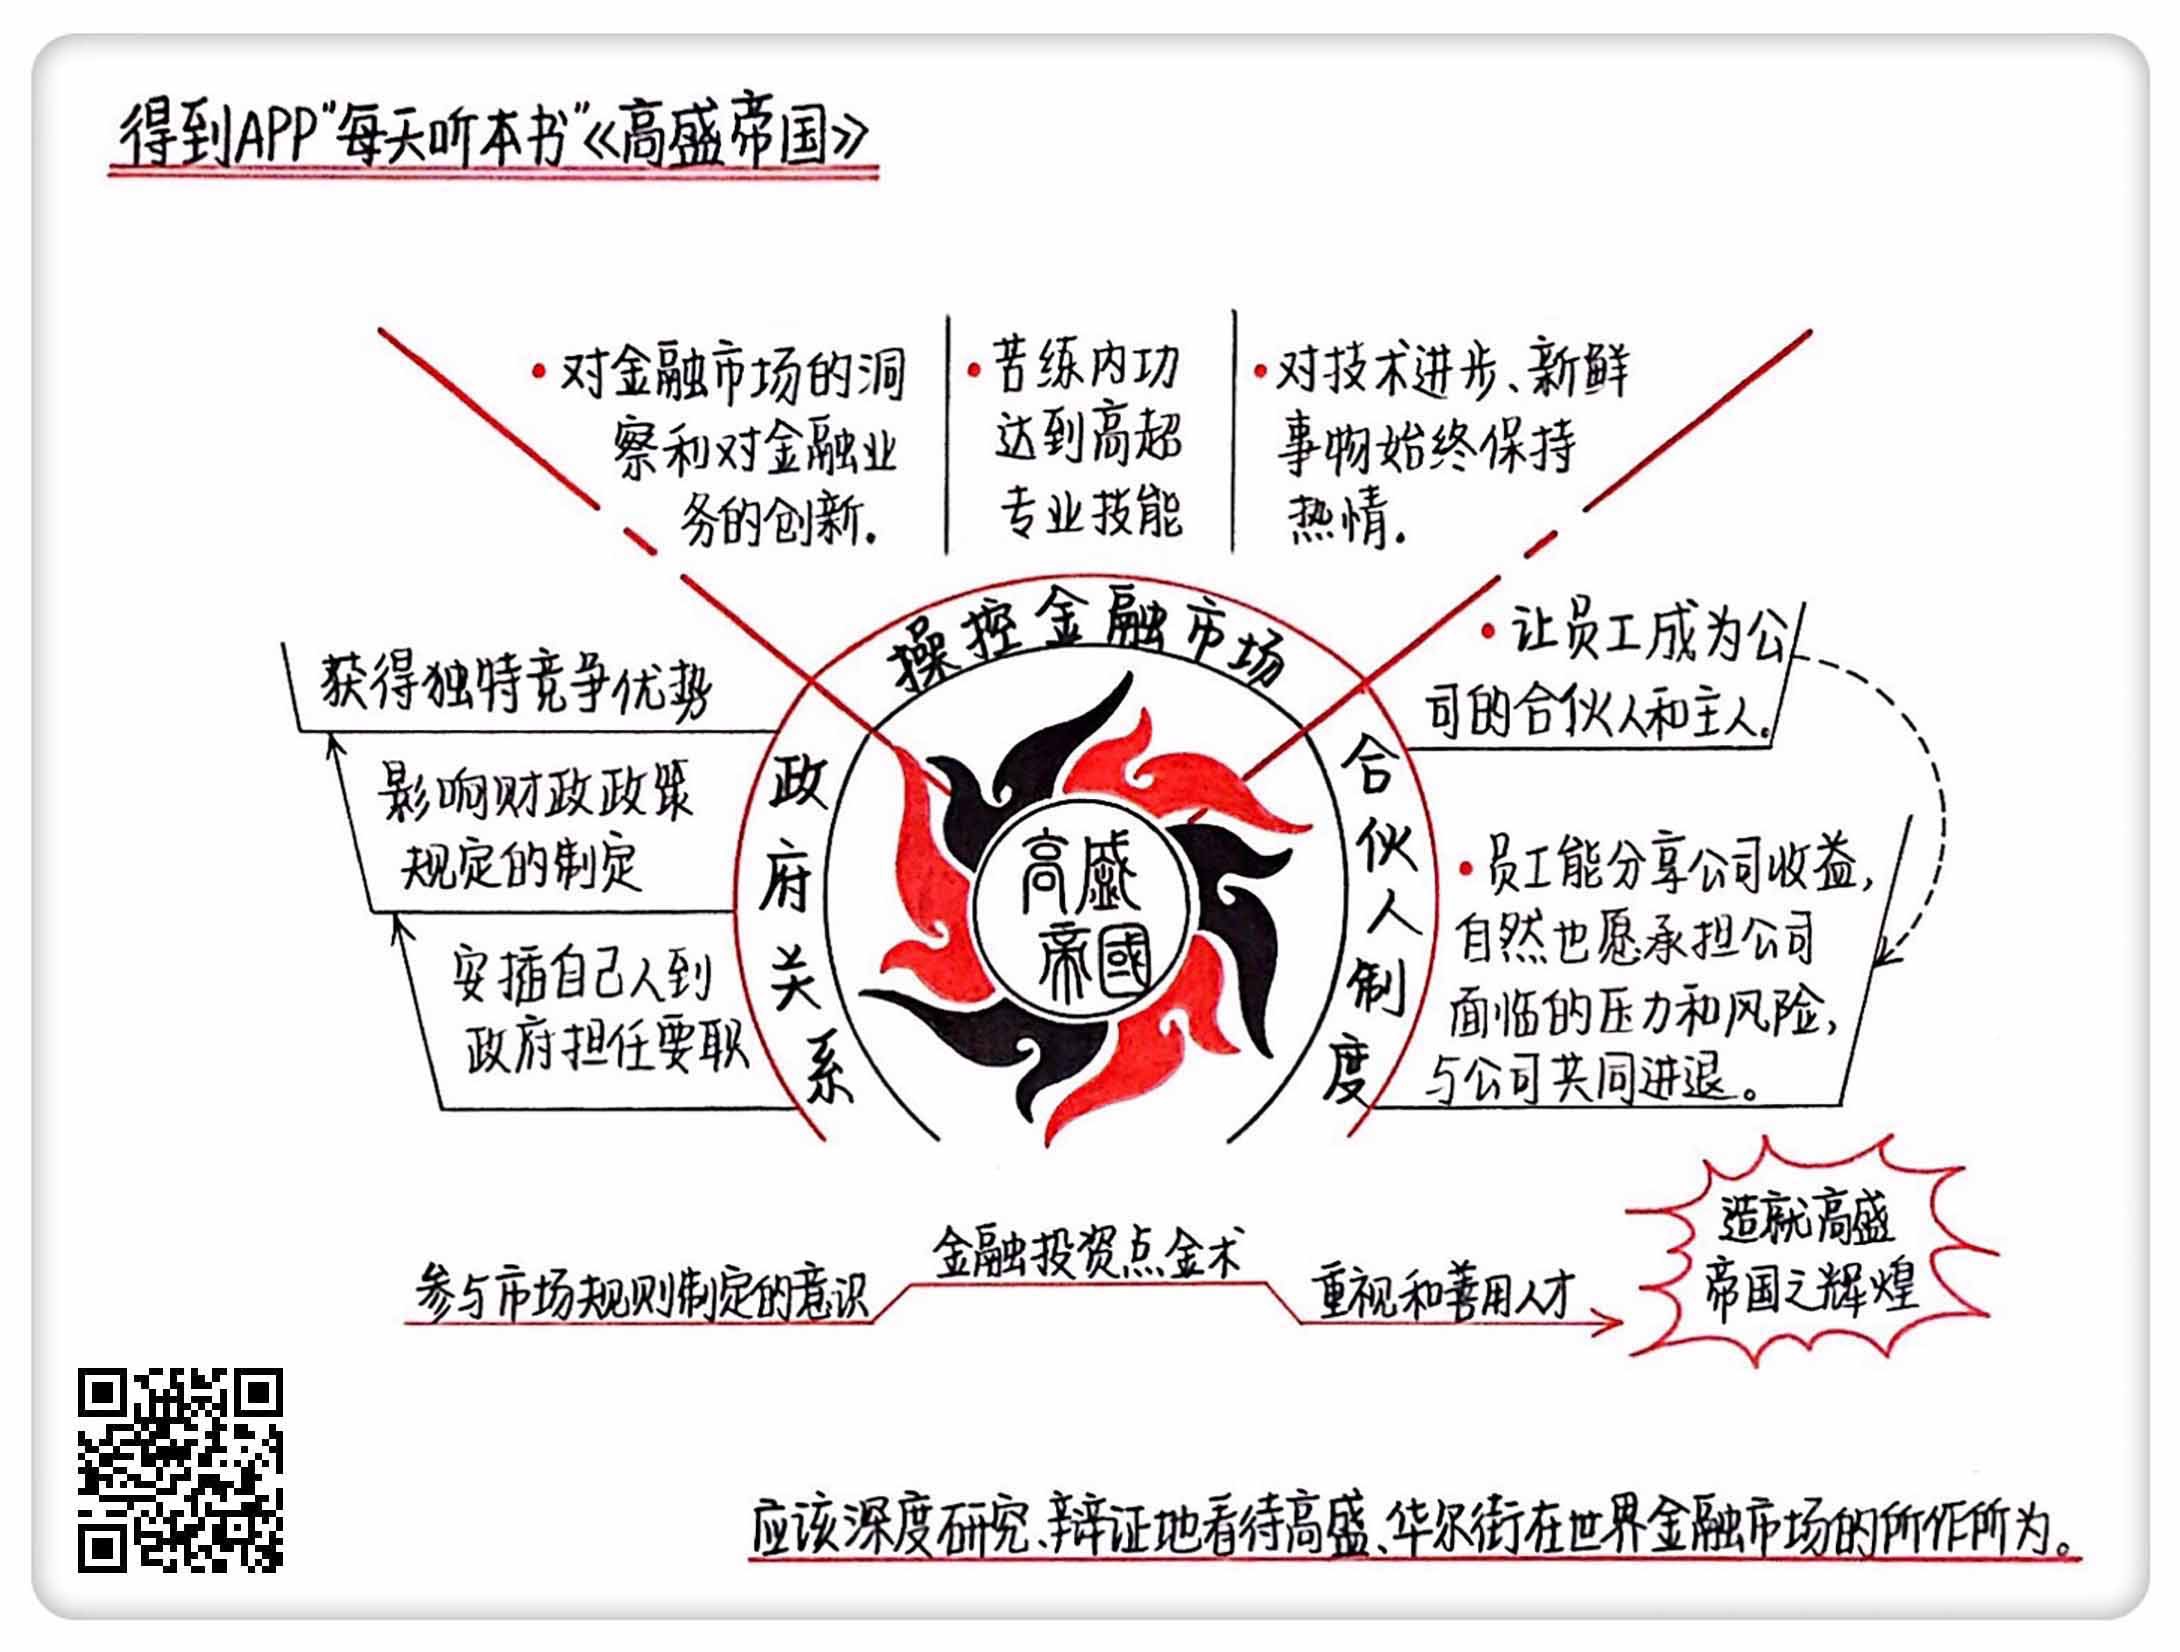 得到APP"每天听本书"《高盛帝国》
·对金融市场的洞
察和对金融业
务的创新.
·苦练内功
达到高超
专业技能
·对技术进步、新鲜
事物始终保持
热情.
操控金融市场
获得独特竞争优势
影响财政政策
规定的制定
安插自己人到
政府担任要职
政府关系
高盛
帝國
合伙人制度
·让员工成为公
司的合伙人和主人.
·员工能分享公司收益,
自然也愿承担公司
面临的压力和风险,
与公司共同进退。
参与市场规则制定的意识
金融投资点金术
重视和善用人才
造就高盛
帝国之辉煌
应该深度研究、辩证地看待高盛、华尔街在世界金融市场的所作所为。